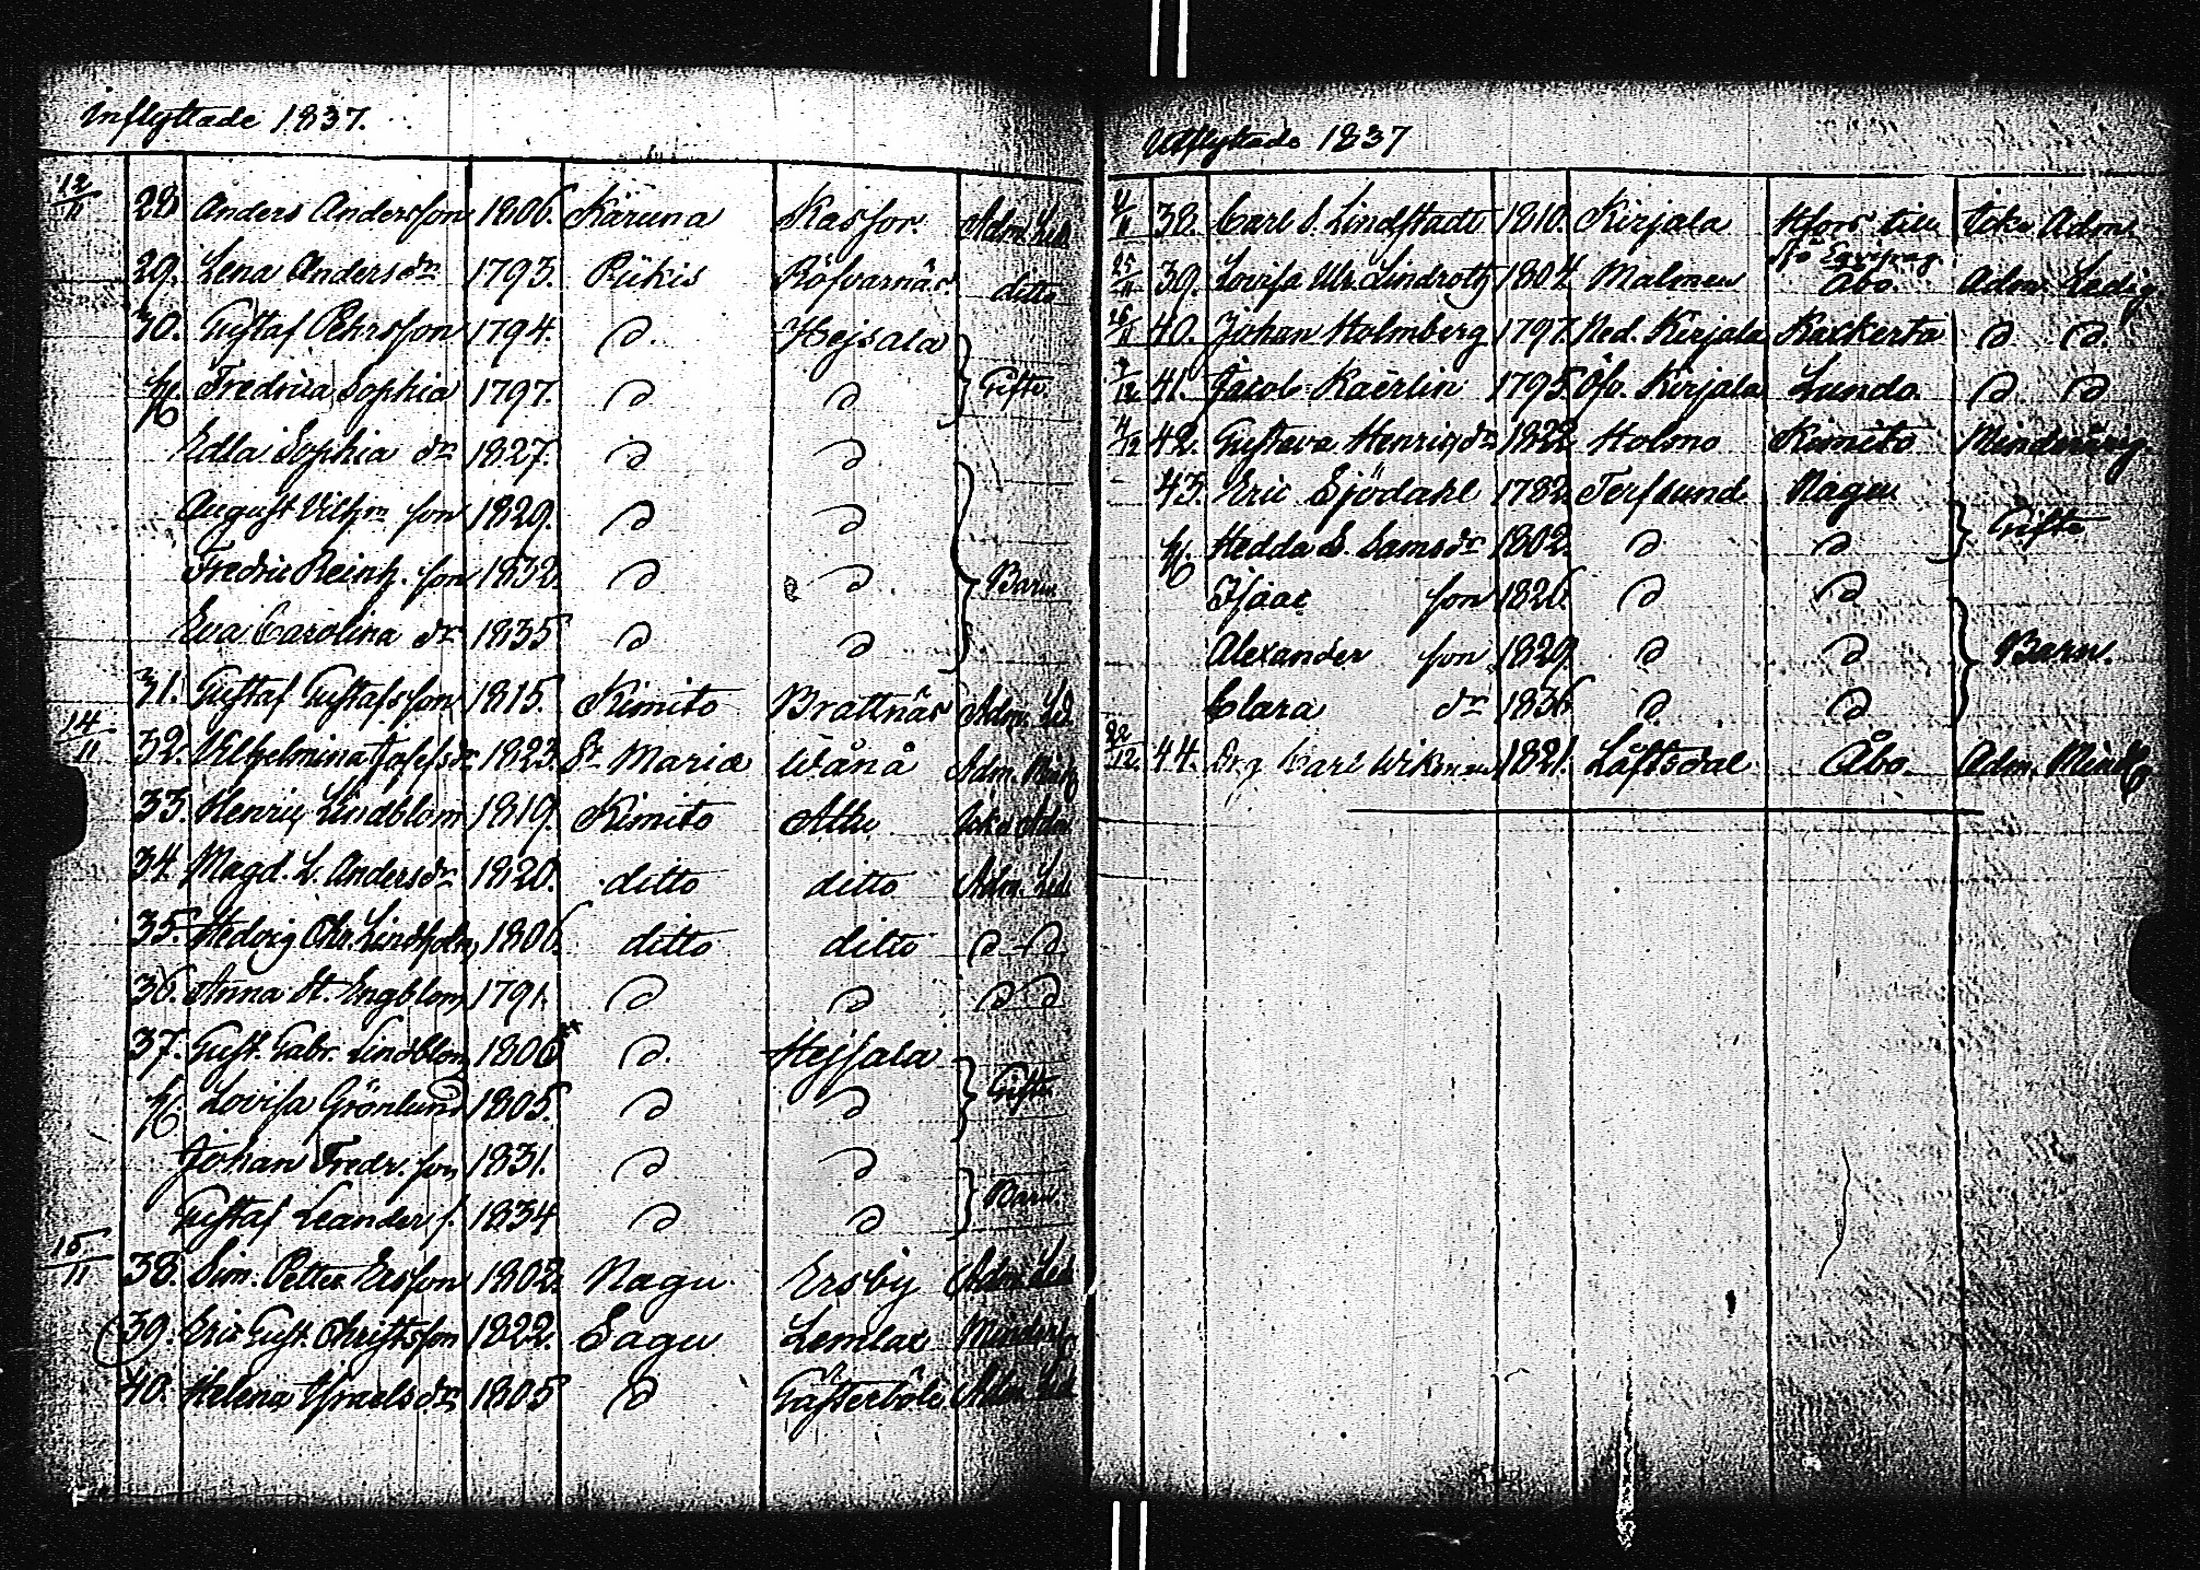 Inflyttade 1837.
12/11 28. Anders Andersson 1806. Karuna Kasfor. Adm. Led.
29. Lena Andersdr 1793. Rükis Röfvarnäs. ditto
30. Gustaf Pehrsson 1794. D. Hejsala
h. Fredrica Sophia 1797. D D Gifte
Edla Sophia dr 1827. D D
August Vilhm son 1829. D D
Fredric Reinh. son 1832. D D Barn
Eva Carolina dr 1835 D D
31. Gustaf Gustafsson 1815. Kimito Brattnäs Adm. Led.
14/11 32. Vilhelmina Josefsdr 1823. St Mariæ Wånå Adm.
33. Henric Lindblom 1819. Kimito Icke Adm
34. Magd. L. Andersdr 1820. ditto ditto Adm. Led.
35. Hedvig Chr. Lindholm 1806. ditto ditto D D
36. Anna St. Engblom 1791. D D D D
37. Gust. Gabr. Lindblom 1806 D. Hejsala
h. Lovisa Grönlund 1805. D D Gifte
Johan Fredr. son 1831. D D
Gustaf Leander s. 1834 D D Barn
15/11 38. Sim. Petter Ersson 1802. Nagu Ersby Adm. Led
39. Eric Gust. Christsson 1822. Sagu Lemlax
40. Helena Israelsdr 1805 D Gästerböle Adm. Led
Utflyttade 1837
38. Carl S. Lindstadt 1810. Kirjala Hfors till Icke Adm.
Sjö Equipag.
25/11 39. Lovisa Ulr. Lindroth 1804. Malmen Åbo. Adm. Ledig
40. Johan Holmberg 1797. Ned. Kirjala Kackerta D D.
41. Jacob Kaërlin 1795. Öfv. Kirjala Lundo D. D
42. Gustava Henricsdr 1822 Holmo Kimito Mindreårig
43. Eric Sjödahl 1782. Terfsund Nagu
h. Hedda S. Samsdr 1802. D D Gifte
Isaac son 1826. D D
Alexander son 1829 D D Barn.
Clara dr 1836 D D
22/12 44. Carl 1821. Låftsdal Åbo. Adm.